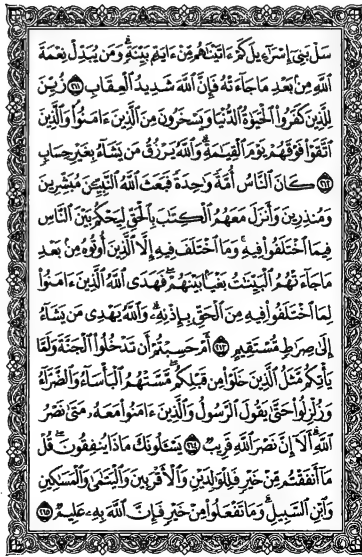 سَلْ بَنِىٓ إِسْرَٰٓءِيلَ كَمْ ءَاتَيْنَٰهُم مِّنْ ءَايَةٍۭ بَيِّنَةٍۢ ۗ وَمَن يُبَدِّلْ نِعْمَةَ
ٱللَّهِ مِنۢ بَعْدِ مَا جَآءَتْهُ فَإِنَّ ٱللَّهَ شَدِيدُ ٱلْعِقَابِ ٢١١ زُيِّنَ
لِلَّذِينَ كَفَرُوا۟ ٱلْحَيَوٰةُ ٱلدُّنْيَا وَيَسْخَرُونَ مِنَ ٱلَّذِينَ ءَامَنُوا۟ ۘ وَٱلَّذِينَ
ٱتَّقَوْا۟ فَوْقَهُمْ يَوْمَ ٱلْقِيَٰمَةِ ۗ وَٱللَّهُ يَرْزُقُ مَن يَشَآءُ بِغَيْرِ حِسَابٍ
٢١٢ كَانَ ٱلنَّاسُ أُمَّةً وَٰحِدَةً فَبَعَثَ ٱللَّهُ ٱلنَّبِيِّۦنَ مُبَشِّرِينَ
وَمُنذِرِينَ وَأَنزَلَ مَعَهُمُ ٱلْكِتَٰبَ بِٱلْحَقِّ لِيَحْكُمَ بَيْنَ ٱلنَّاسِ
فِيمَا ٱخْتَلَفُوا۟ فِيهِ ۚ وَمَا ٱخْتَلَفَ فِيهِ إِلَّا ٱلَّذِينَ أُوتُوهُ مِنۢ بَعْدِ
مَا جَآءَتْهُمُ ٱلْبَيِّنَٰتُ بَغْيًۢا بَيْنَهُمْ ۖ فَهَدَى ٱللَّهُ ٱلَّذِينَ ءَامَنُوا۟
لِمَا ٱخْتَلَفُوا۟ فِيهِ مِنَ ٱلْحَقِّ بِإِذْنِهِۦ ۗ وَٱللَّهُ يَهْدِى مَن يَشَآءُ
إِلَىٰ صِرَٰطٍ مُّسْتَقِيمٍ ٢١٣ أَمْ حَسِبْتُمْ أَن تَدْخُلُوا۟ ٱلْجَنَّةَ وَلَمَّا
يَأْتِكُم مَّثَلُ ٱلَّذِينَ خَلَوْا۟ مِن قَبْلِكُم ۖ مَّسَّتْهُمُ ٱلْبَأْسَآءُ وَٱلضَّرَّآءُ
وَزُلْزِلُوا۟ حَتَّىٰ يَقُولَ ٱلرَّسُولُ وَٱلَّذِينَ ءَامَنُوا۟ مَعَهُۥ مَتَىٰ نَصْرُ
ٱللَّهِ ۗ أَلَآ إِنَّ نَصْرَ ٱللَّهِ قَرِيبٌ ٢١٤ يَسْـَٔلُونَكَ مَاذَا يُنفِقُونَ ۖ قُلْ
مَآ أَنفَقْتُم مِّنْ خَيْرٍ فَلِلْوَٰلِدَيْنِ وَٱلْأَقْرَبِينَ وَٱلْيَتَٰمَىٰ وَٱلْمَسَٰكِينِ
وَٱبْنِ ٱلسَّبِيلِ ۗ وَمَا تَفْعَلُوا۟ مِنْ خَيْرٍ فَإِنَّ ٱللَّهَ بِهِۦ عَلِيمٌ ٢١٥